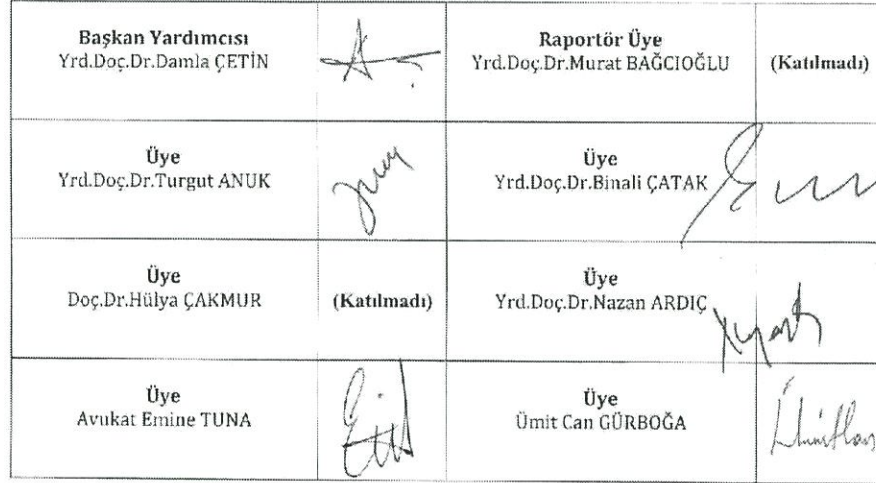 Başkan Yardımcısı
Yrd.Doç.Dr.Damla ÇETİN
Raportör Üye
Yrd.Doç.Dr.Murat BAĞCIOĞLU
(Katılmadı)
Üye
Yrd.Doç.Dr.Turgut ANUK
Üye
Yrd.Doç.Dr.Binali ÇATAK
Üye
Doç.Dr.Hülya ÇAKMUR
(Katılmadı)
Üye
Yrd.Doç.Dr.Nazan ARDIÇ
Üye
Avukat Emine TUNA
Üye
Ümit Can GÜRBOĞA